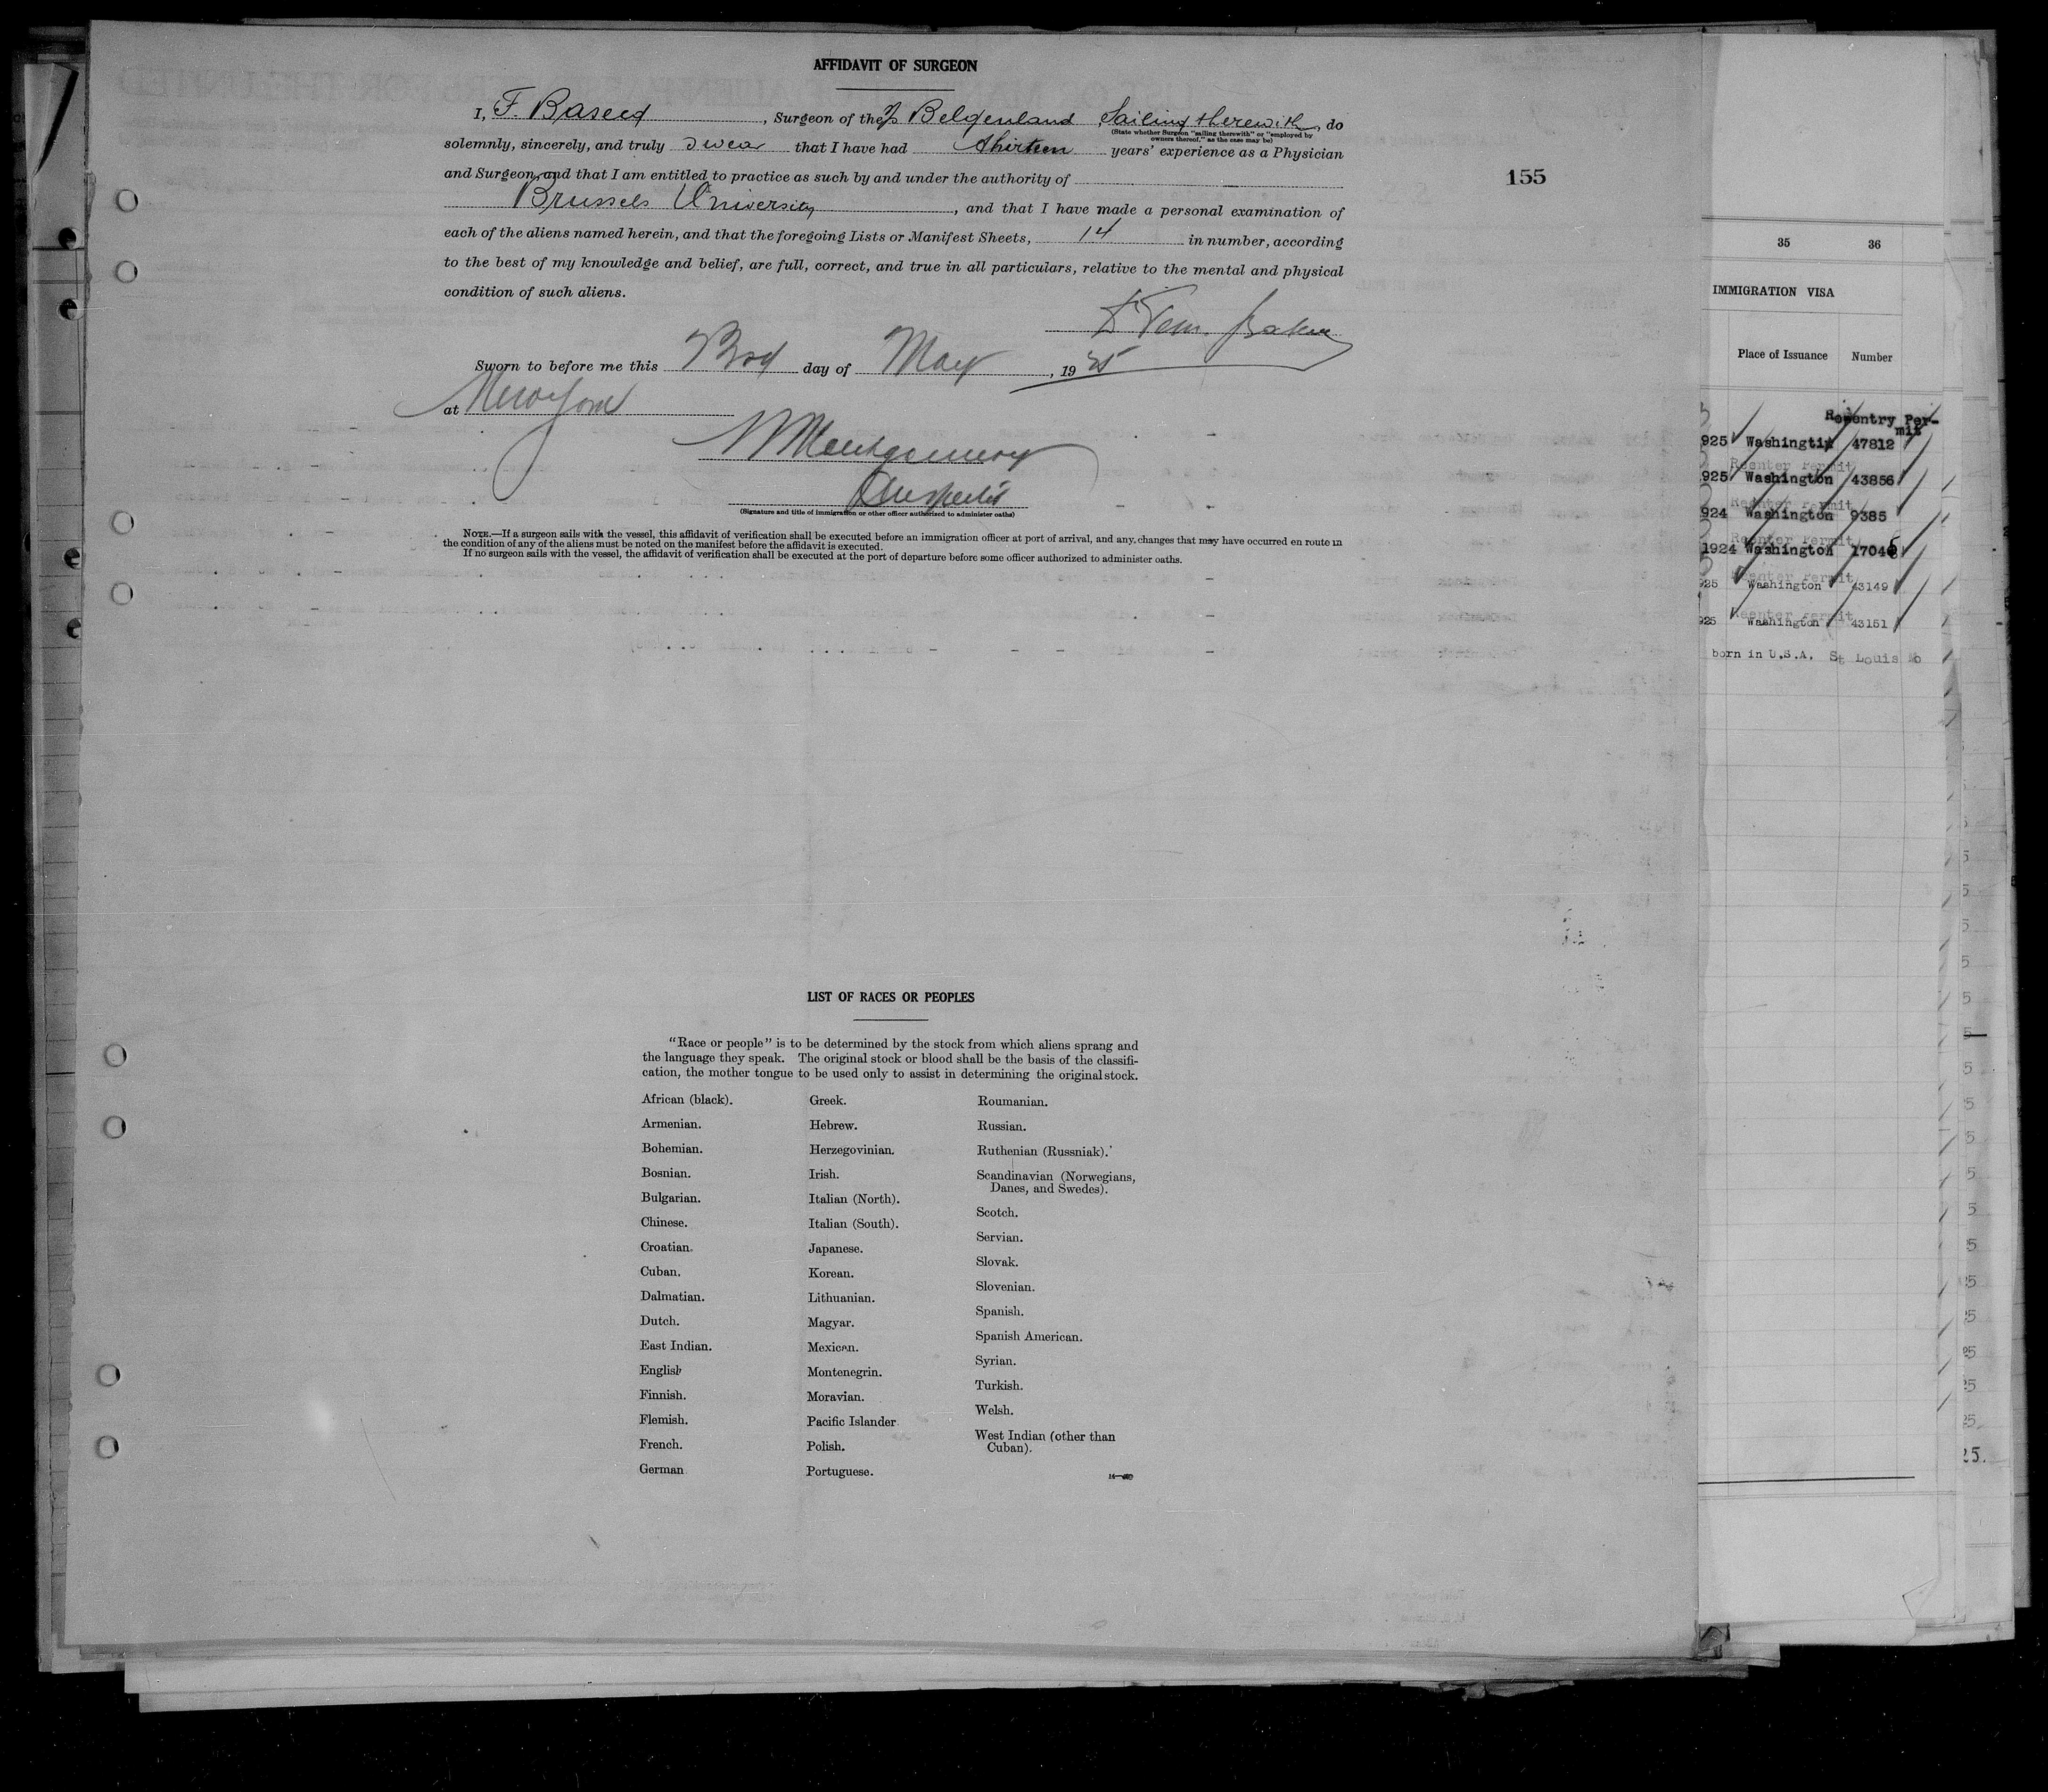 AFFIDAVIT OF SURGEON
I, F. Baseed, Surgeon of the S/S Belgenland Sailing therewith, do
(State whether Surgeon "sailing therewith" or "employed by
owners thereof," as the case may be)
solemnly, sincerely, and truly swear that I have had thirteen years' experience as a Physician
and Surgeon and that I am entitled to practice as such by and under the authority of
Brussels University, and that I have made a personal examination of
each of the aliens named herein, and that the foregoing Lists or Manifest Sheets, 14 in number, according
to the best of my knowledge and belief, are full, correct, and true in all particulars, relative to the mental and physical
condition of such aliens.
Sworn to before me this 3rd day of May, 1925
at New York
Montgomery
Inspector
(Signature and title of immigration or other officer authorized to administer oaths)
NOTE.—If a surgeon sails with the vessel, this affidavit of verification shall be executed before an immigration officer at port of arrival, and any changes that may have occurred en route in
the condition of any of the aliens must be noted on the manifest before the affidavit is executed.
If no surgeon sails with the vessel, the affidavit of verification shall be executed at the port of departure before some officer authorized to administer oaths.
155
35 36
IMMIGRATION VISA
Place of Issuance Number
Reentry Per-
mit
925 Washingtin 47812
Reenter Permit
925 Washington 43856
Reenter Permit
924 Washington 9385
Reenter Permit
1924 Washington 17045
Reenter Permit
925 Washington 43149
Reenter Permit
925 Washington 43151
born in U.S.A. St Louis Mo
LIST OF RACES OR PEOPLES
"Race or people" is to be determined by the stock from which aliens sprang and
the language they speak. The original stock or blood shall be the basis of the classifi-
cation, the mother tongue to be used only to assist in determining the original stock.
African (black).
Armenian.
Bohemian.
Bosnian.
Bulgarian.
Chinese.
Croatian.
Cuban.
Dalmatian.
Dutch.
East Indian.
English
Finnish.
Flemish.
French.
German
Greek.
Hebrew.
Herzegovinian.
Irish.
Italian (North).
Italian (South).
Japanese.
Korean.
Lithuanian.
Magyar.
Mexican.
Montenegrin.
Moravian.
Pacific Islander
Polish.
Portuguese.
Roumanian.
Russian.
Ruthenian (Russniak).
Scandinavian (Norwegians,
Danes, and Swedes).
Scotch.
Servian.
Slovak.
Slovenian.
Spanish.
Spanish American.
Syrian.
Turkish.
Welsh.
West Indian (other than
Cuban).